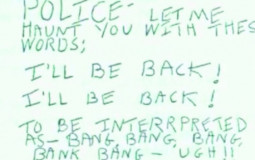 POLICE- LET ME
HAUNT YOU WITH THES
WORDS;
I'LL BE BACK!
I'LL BE BACK!
TO BE INTERRPRETED
AS- BANG BANG, BANG,
BANK BANG- UGH!!